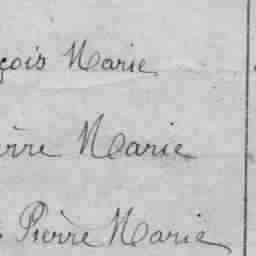 çois Marie
erre Marie
Pierre Marie